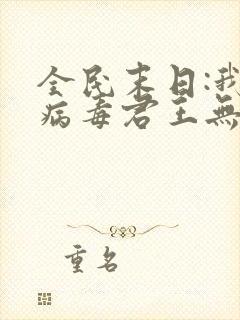 全民末日:我
病毒君王無
重名